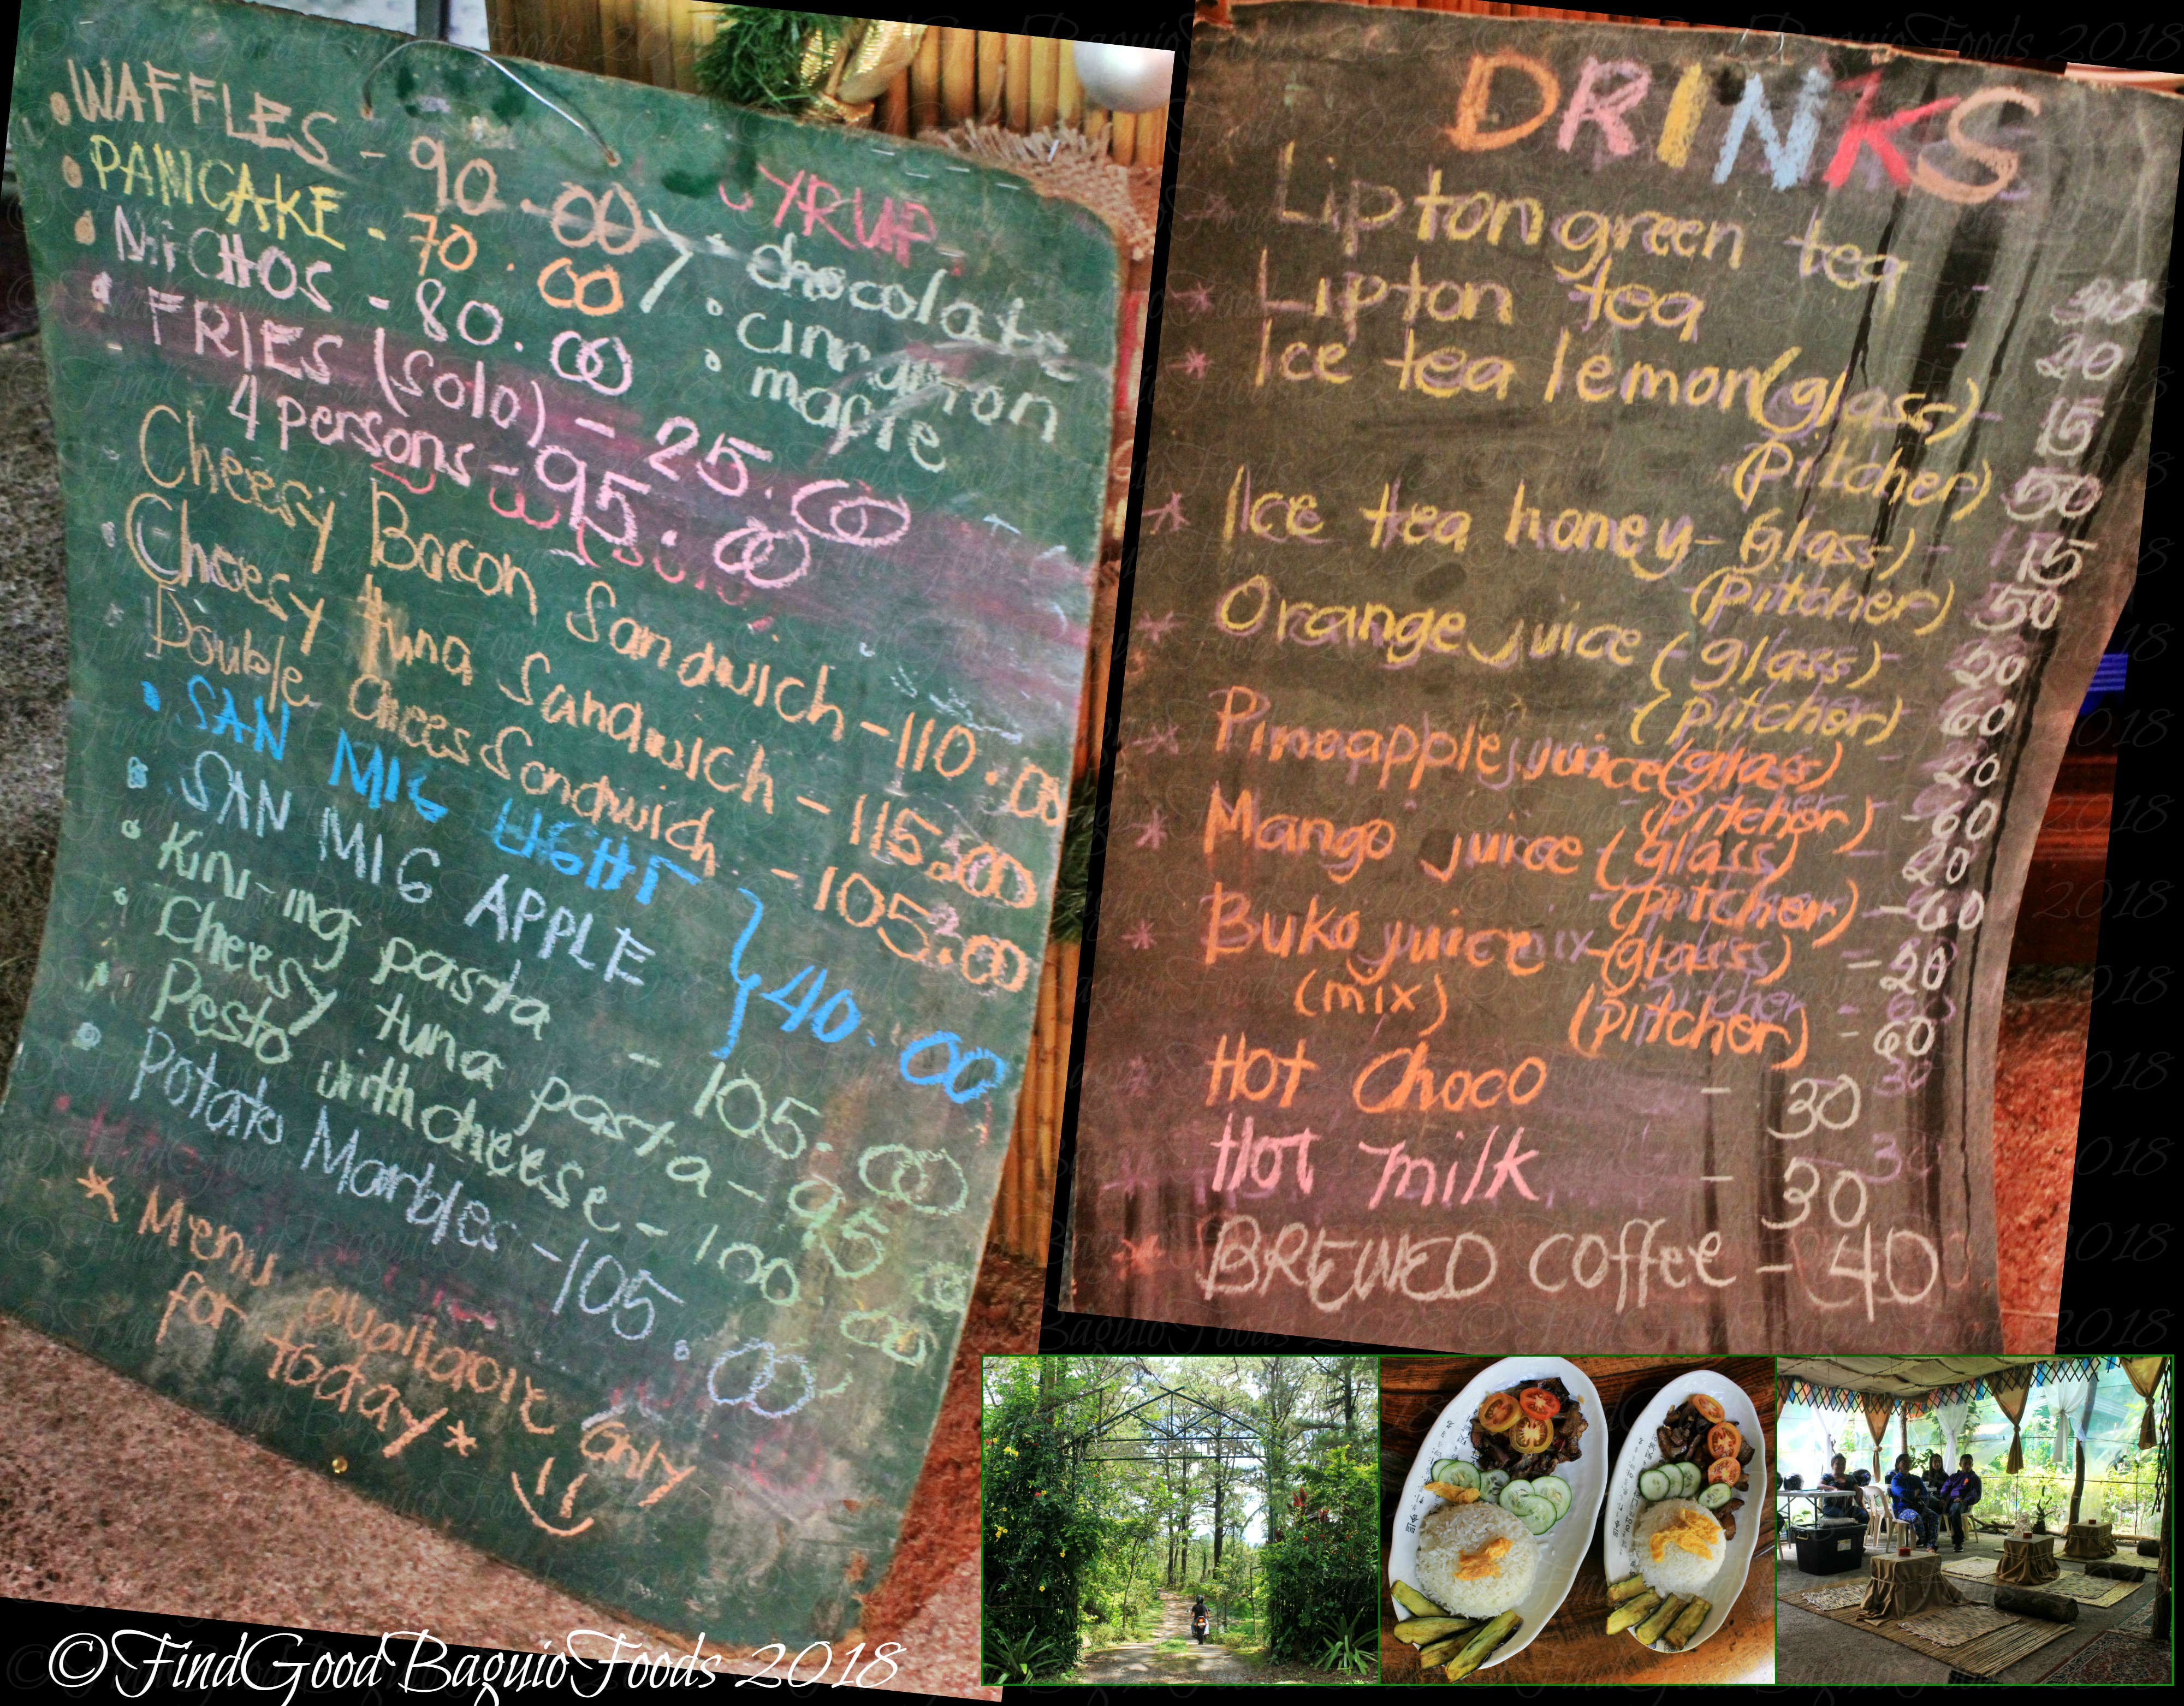 WAFFLES - 90.00
PANCAKE - 70.00
NACHOS - 80.00
SYRUP
chocolate
cinnamon
maple
FRIES (solo) - 25.00
4 persons - 95.00
Cheesy Bacon Sandwich - 110.00
Cheesy tuna Sandwich - 115.00
Double Chees Sandwich - 105.00
SAN MIG LIGHT
SAN MIG APPLE
40.00
Kini-ing pasta - 105.00
Cheesy tuna pasta - 95.00
Pesto with cheese - 100.00
Potato Marbles - 105.00
* Menu available only
for today *
DRINKS
* Lipton green tea -
* Lipton tea - 20
* Ice tea lemon (glass) - 15
(pitcher) 50
* Ice tea honey - (glass) - 15
(pitcher) 50
* Orange juice (glass) - 20
(pitcher) 60
* Pineapple juice (glass) - 20
(pitcher) - 60
* Mango juice (glass) - 20
(pitcher) - 60
* Buko juice (glass) - 20
(mix) (pitcher) - 60
Hot Choco - 30
Hot milk - 30
* BREWED coffee - 40
©FindGoodBaguioFoods 2018